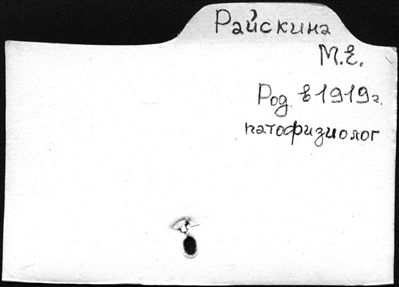 Райскина
М.Е.
Род. в 1919г.
патофизиолог